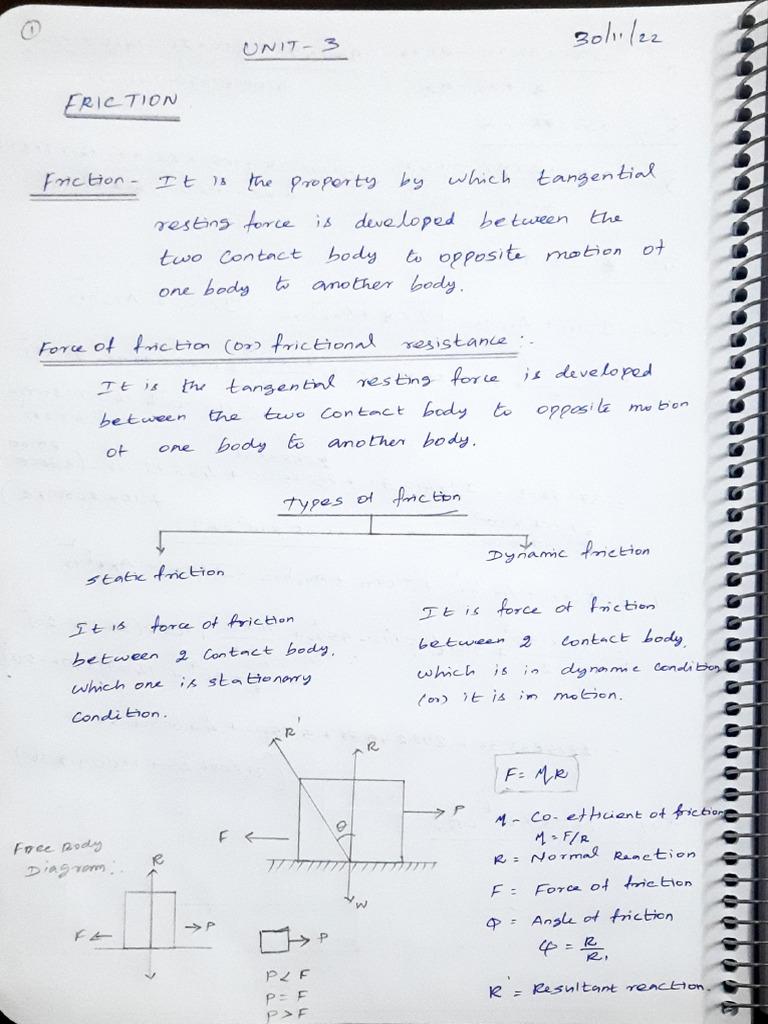 1
UNIT - 3
30/11/22
FRICTION
Friction - It is the property by which tangential
resting force is developed between the
two contact body to opposite motion of
one body to another body.
Force of friction (or) frictional resistance :-
It is the tangential resting force is developed
between the two contact body to opposite motion
of one body to another body.
Types of friction
Static friction
Dynamic friction
It is force of friction
between 2 contact body,
which one is stationary
condition.
It is force of friction
between 2 contact body,
which is in dynamic condition
(or) it is in motion.
R'
R
θ
F
P
W
F = MR
M - Co-efficient of friction
M = F/R
R = Normal Reaction
F = Force of friction
Φ = Angle of friction
φ = R/R,
R' = Resultant reaction.
Free Body
Diagram :-
R
F
P
P
P < F
P = F
P > F